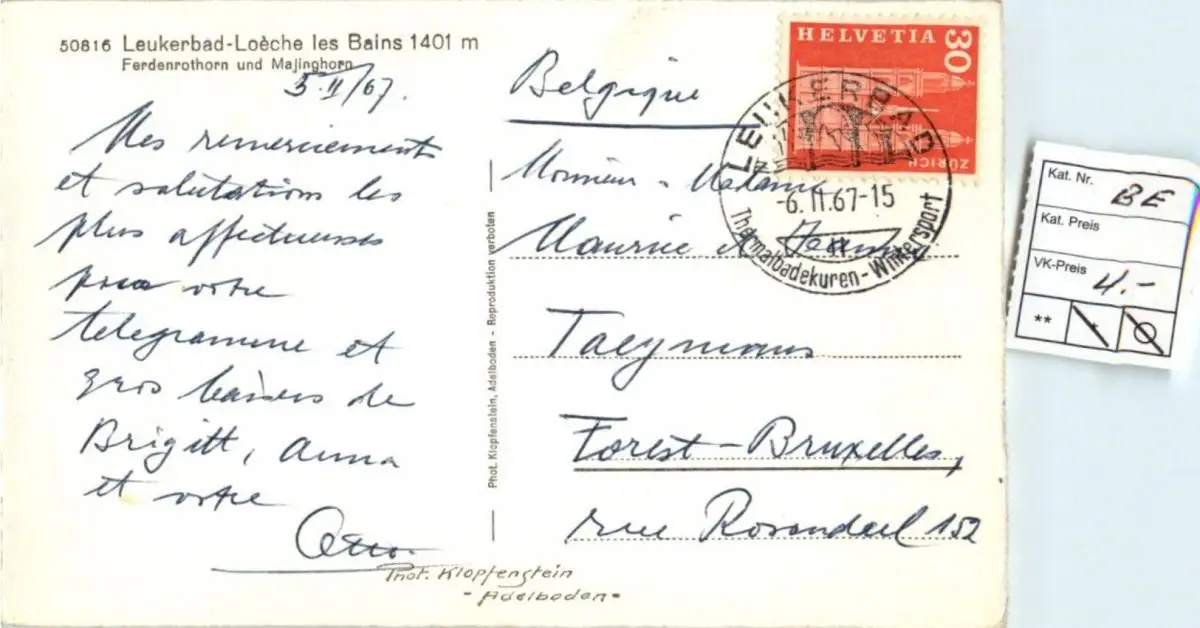 50816 Leukerbad-Loèche les Bains 1401 m
Ferdenrothorn und Majinghorn
5.II/67.
Mes remerciements
et salutations les
plus affectueuses
pour votre
telegramme et
gros baisers de
Brigitt, Anna
et votre
Otto
Phot. Klopfenstein
- Adelboden -
Phot. Klopfenstein, Adelboden - Reproduktion verboten
Belgique
Monsieur - Madame
Maurice et
Taeymans
Forest-Bruxelles,
rue Rosendael 152
HELVETIA
30
ZÜRICH
LEUKERBAD
-6.II.67-15
Thermalbadekuren - Wintersport
Kat. Nr. BE
Kat. Preis
VK-Preis 4.-
**